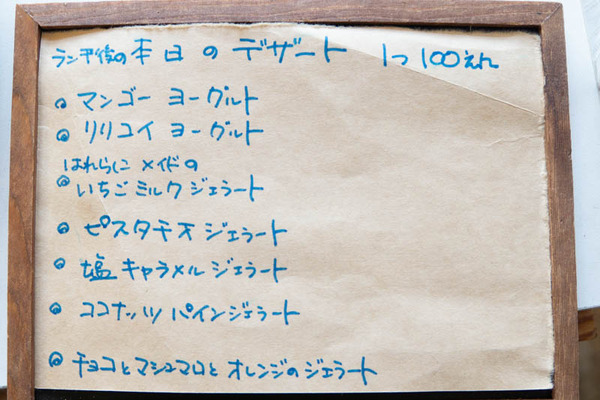 ランチ後の本日のデザート 1つ100えん
マンゴーヨーグルト
リリコイヨーグルト
はれらしこメイドの
いちごミルクジェラート
ピスタチオジェラート
塩キャラメルジェラート
ココナッツパインジェラート
チョコとマシュマロとオレンジのジェラート